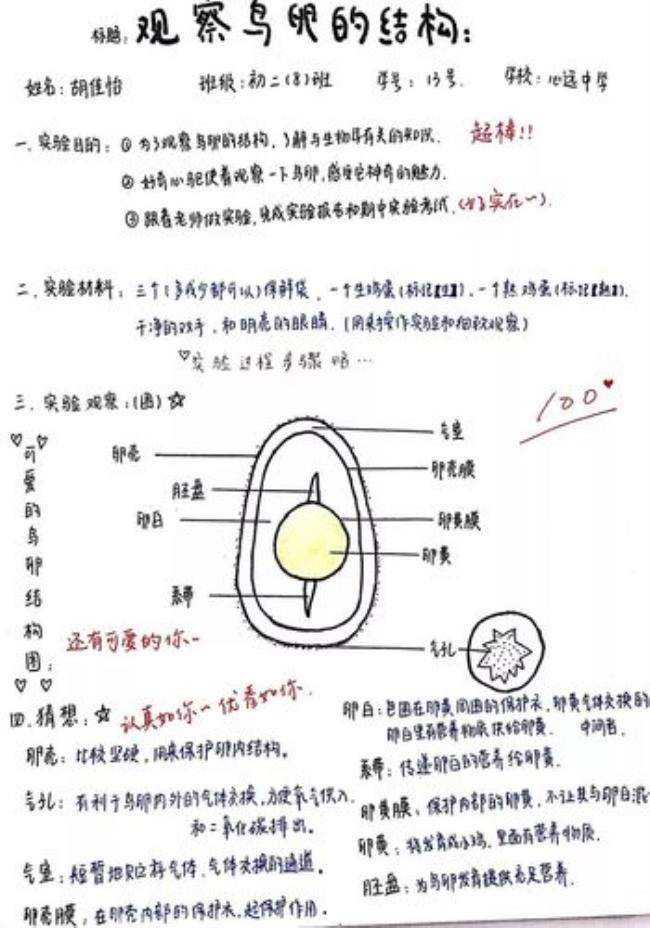 标题:观察鸟卵的结构:
姓名:胡佳怡 班级:初二(8)班 学号:13号. 学校:心远中学
一.实验目的:①为了观察鸟卵的结构,了解与生物学有关的知识. 超棒!!
②好奇心驱使着观察一下鸟卵,感受它神奇的魅力.
③跟着老师做实验,完成实验报告和期中实验考试.(好实在~)
二.实验材料:三个(多或少都可以)保鲜袋、一个生鸡蛋(标记【生】)、一个熟鸡蛋(标记【熟】).
干净的双手,和明亮的眼睛.(用来操作实验和细致观察)
♡实验过程步骤略…
三.实验观察:(图)☆
100
♡♡可爱的鸟卵结构图:♡♡
气室
卵壳
卵壳膜
胚盘
卵白
卵黄膜
卵黄
系带
还有可爱的你~
气孔
四.猜想:☆ 认真如你~优秀如你.
卵壳:比较坚硬,用来保护卵内结构。
气孔:有利于鸟卵内外的气体交换,方便氧气供入
和二氧化碳排出。
气室:短暂地贮存气体,气体交换的通道。
卵壳膜,在卵壳内部的保护衣,起保护作用.
卵白:包围在卵黄周围的保护衣,卵黄气体交换的
卵白里有营养物质供给卵黄. 中间者.
系带:传递卵白的营养给卵黄.
卵黄膜、保护内部的卵黄,不让其与卵白混
卵黄:将发育成小鸡,里面有营养物质.
胚盘:为鸟卵发育提供充足营养.